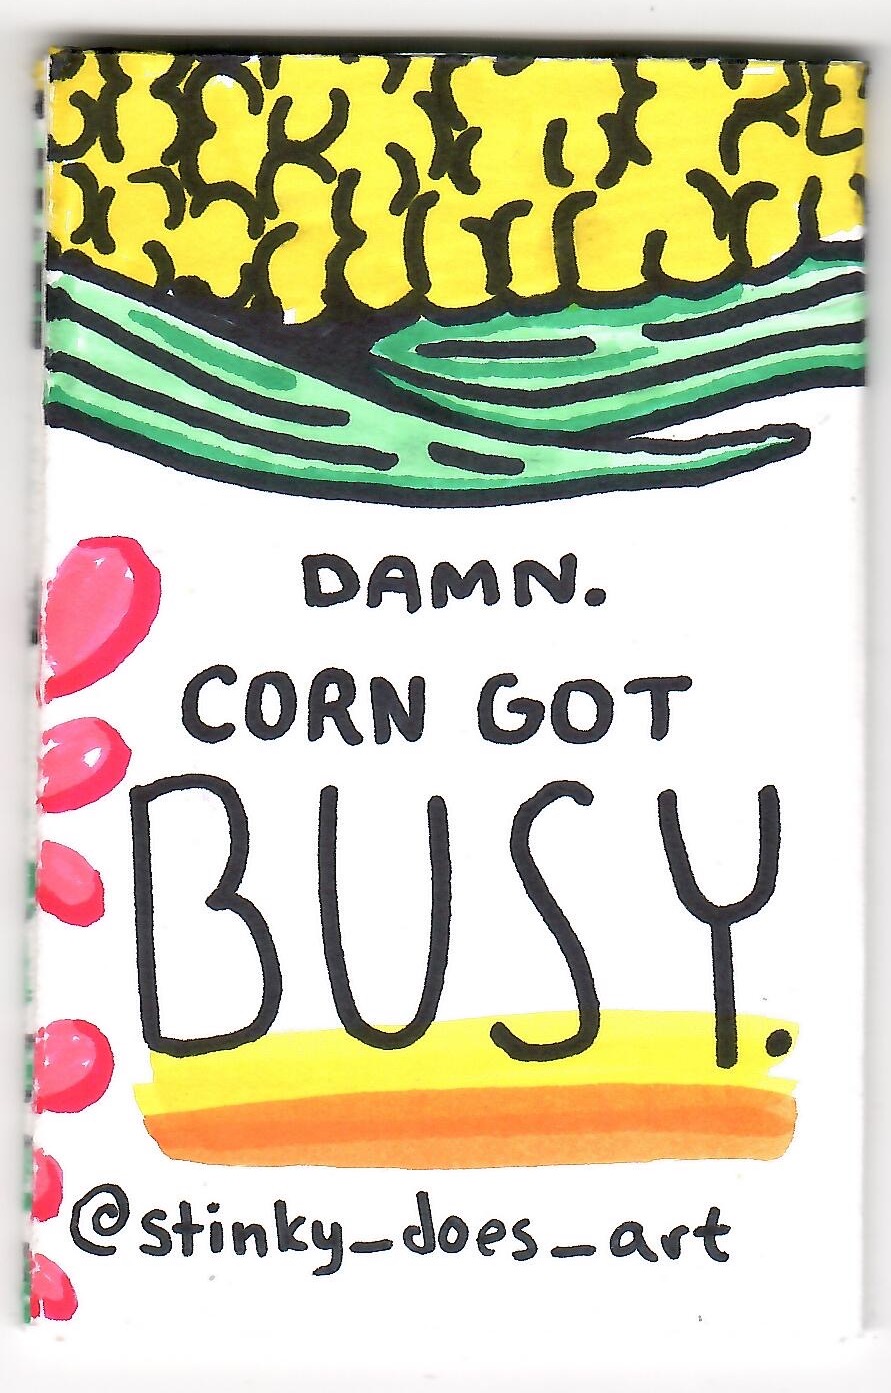 DAMN.
CORN GOT
BUSY.
@stinky_does_art